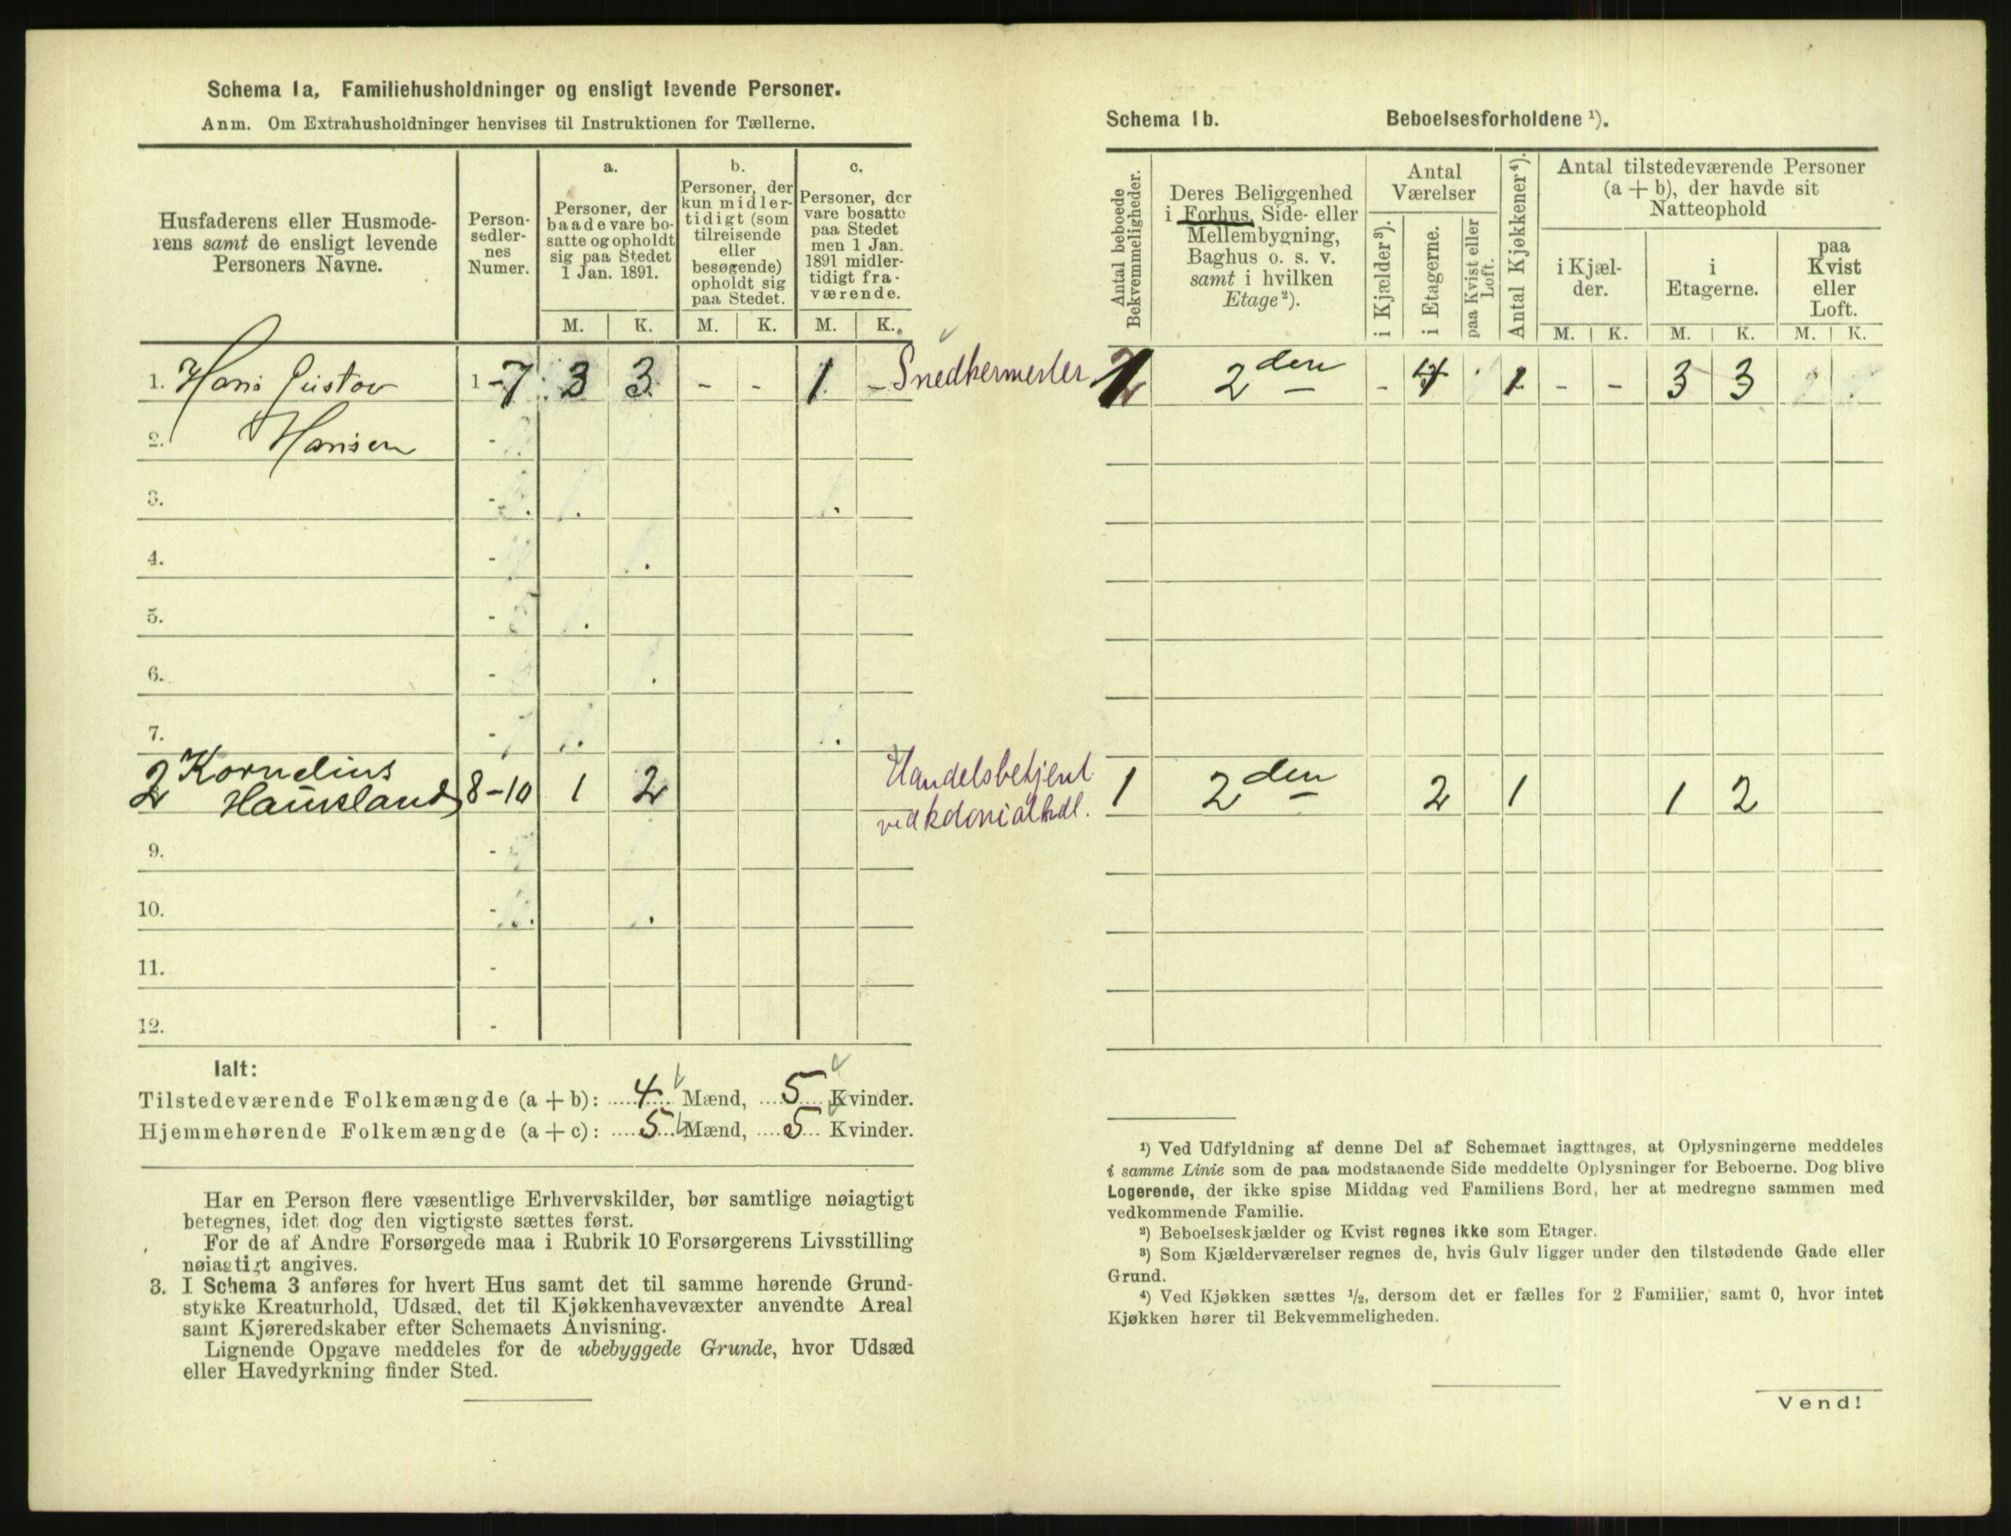 Schema 1a. Familiehusholdninger og ensligt levende Personer.
Anm. Om Extrahusholdninger henvises til Instruktionen for Tællerne.
Husfaderens eller Husmode-
rens samt de ensligt levende
Personers Navne.
Person-
sedler-
nes
Numer.
a.
Personer, der
baade vare bo-
satte og opholdt
sig paa Stedet
1 Jan. 1891.
b.
Personer, der
kun midler-
tidigt (som
tilreisende
eller
besøgende)
opholdt sig
paa Stedet.
c.
Personer, der
vare bosatte
paa Stedet
men 1 Jan.
1891 midler-
tidigt fra-
værende.
M. K. M. K. M. K.
1. Hans Gustav 1-7 3 3 - - 1 - Snedkermester
2. Hansen -
3. -
4. -
5. -
6. -
7. -
2 Kornelius
Hausland 8-10 1 2 Handelsbetjent
ved kolonialhdl.
9. -
10. -
11. -
12. -
Ialt:
Tilstedeværende Folkemængde (a + b): 4 Mænd, 5 Kvinder.
Hjemmehørende Folkemængde (a + c): 5 Mænd, 5 Kvinder.
Har en Person flere væsentlige Erhvervskilder, bør samtlige nøiagtigt
betegnes, idet dog den vigtigste sættes først.
For de af Andre Forsørgede maa i Rubrik 10 Forsørgerens Livsstilling
nøiagtigt angives.
3. I Schema 3 anføres for hvert Hus samt det til samme hørende Grund-
stykke Kreaturhold, Udsæd, det til Kjøkkenhavevæxter anvendte Areal
samt Kjøreredskaber efter Schemaets Anvisning.
Lignende Opgave meddeles for de ubebyggede Grunde, hvor Udsæd
eller Havedyrkning finder Sted.
Schema 1b. Beboelsesforholdene ¹).
Antal beboede
Bekvemmeligheder.
Deres Beliggenhed
i Forhus, Side- eller
Mellembygning,
Baghus o. s. v.
samt i hvilken
Etage ²).
Antal
Værelser
i Kjælder ³).
i Etagerne.
paa Kvist eller
Loft.
Antal Kjøkkener ⁴).
Antal tilstedeværende Personer
(a + b), der havde sit
Natteophold
i Kjæl-
der.
i
Etagerne.
paa
Kvist
eller
Loft.
M. K. M. K. M. K.
1 2 den - 4 1 - - 3 3
1 2 den 2 1 1 2
¹) Ved Udfyldning af denne Del af Schemaet iagttages, at Oplysningerne meddeles
i samme Linie som de paa modstaaende Side meddelte Oplysninger for Beboerne. Dog blive
Logerende, der ikke spise Middag ved Familiens Bord, her at medregne sammen med
vedkommende Familie.
²) Beboelseskjælder og Kvist regnes ikke som Etager.
³) Som Kjælderværelser regnes de, hvis Gulv ligger under den tilstødende Gade eller
Grund.
⁴) Ved Kjøkken sættes ½, dersom det er fælles for 2 Familier, samt 0, hvor intet
Kjøkken hører til Bekvemmeligheden.
Vend!